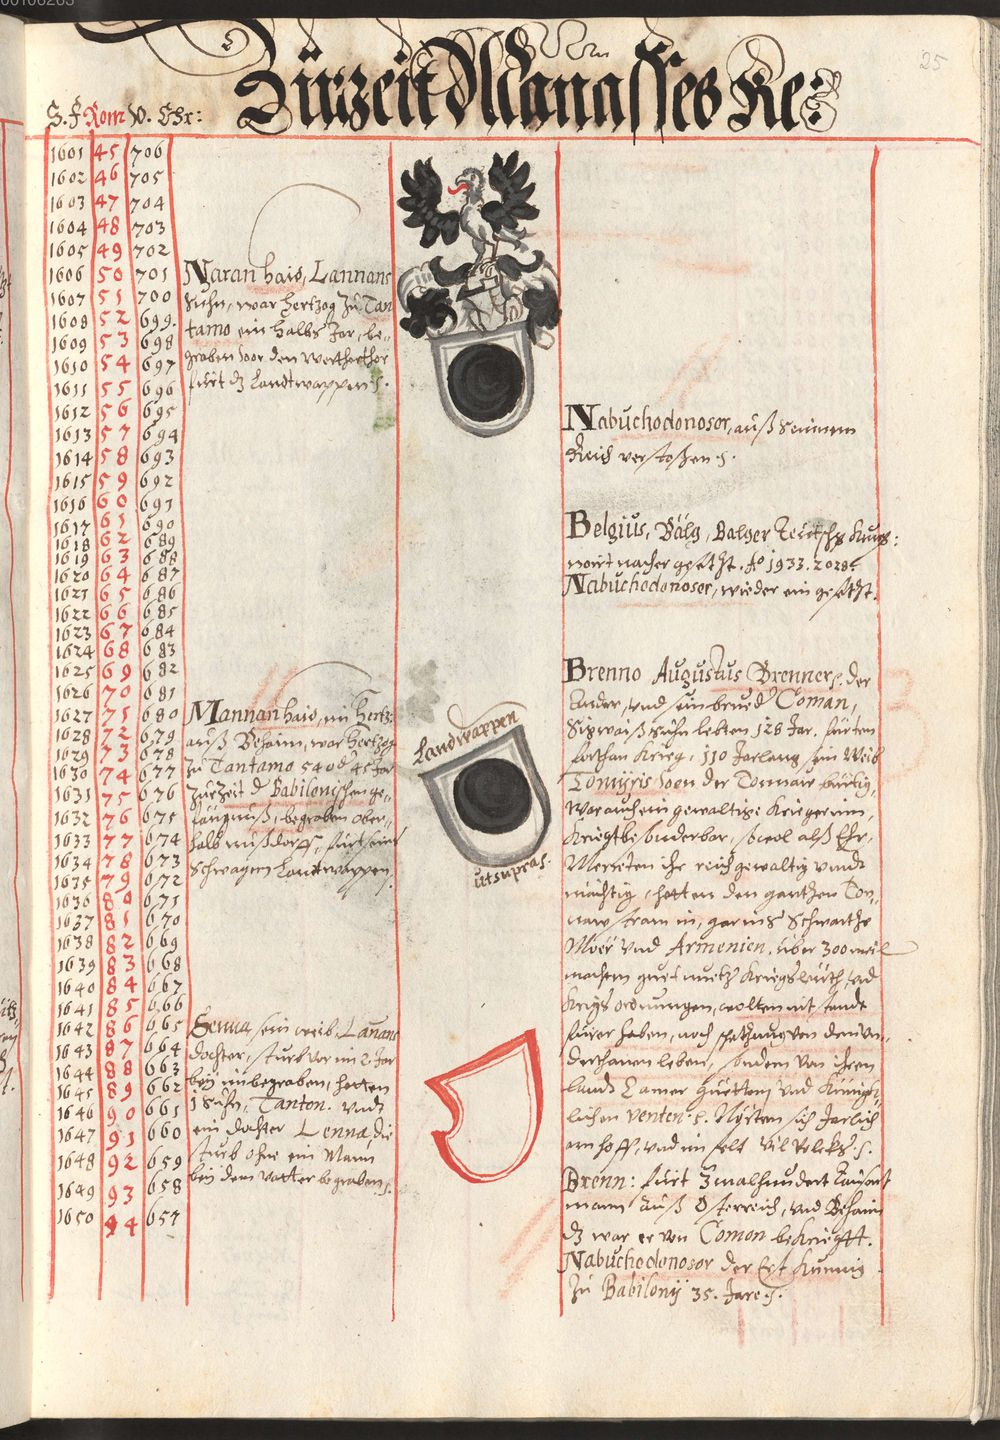 25
Zuͤrzeit Manasses Re:
S. F Rom V. Chr:
1601 45 706
1602 46 705
1603 47 704
1604 48 703
1605 49 702
1606 50 701
1607 51 700
1608 52 699.
1609 53 698
1610 54 697
1611 55 696
1612 56 695
1613 57 694
1614 58 693
1615 59 692
1616 60 691
1617 61 690
1618 62 689
1619 63 688
1620 64 687
1621 65 686
1622 66 685
1623 67 684
1624 68 683
1625 69 682
1626 70 681
1627 71 680
1628 72 679
1629 73 678
1630 74 677
1631 75 676
1632 76 675
1633 77 674
1634 78 673
1635 79 672
1636 80 671
1637 81 670
1638 82 669
1639 83 668
1640 84 667
1641 85 666
1642 86 665
1643 87 664
1644 88 663
1645 89 662
1646 90 661
1647 91 660
1648 92 659
1649 93 658
1650 94 657
Naran haid, Lannans
Suhn, war Hertzog zu Tan
tamo ein halbs Jar, be-
graben vor den Werther thor
fuͤrt dz Landtwappen
Mannan haid, ein Hertz:
auß Behaim, war Hertzog
zu Tantamo 54 od 45 Jar
Zurzeit d Babilonischen ge-
fäncnuß, begraben ober-
halb nußdorff, fuͤrt seins
Schwagern Landtwappen.
Senna, sein weib, Lanans
dochter, sturb vor im 2 Jar
bey im begraben, hetten
1 Suhn, Tanton. vnd
ein dochter Lenna, die
sturb ohne ein Mann
bey dem vatter begraben
Landwappen
ut supra
Nabuchodonosor, auß seinem
Reich verstoßen
Belgius, Bälg, Balger Teutsche Kung:
wirt nacher gesetzt. Ao 1933. 2028
Nabuchodonosor, wieder ein gesetzt.
Brenno Augustus Brenner, der
Ander, vnd sein brued Coman,
Suhn lebten 128 Jar. fuͤrten
Krieg, 110 Jarlang sein Weib
Tomyris von der Tonnaw buͤrtig,
War auch ein gewaltige Kriegerin,
Kriegt besunderbar, sowol alß Ihr
ihr reich gewaltig vnd
mächtig, hetten den gantzen Ton-
naw stram in, gar ins Schwartze
Moͤr vnd Armenien. uͤber 300 meil
machten guet nuetz Kriegsleuth vnd
Kriegs ordnungen, wolten nit
haben, noch von den vn-
derthanen leben, sondern von ihren
landt Camer Guettern vnd Kuͤnig-
lichen renten. Jarlich
am hoff, vnd im felt vil
Brenn: fuͤrt 3malhundert tausent
mann auß Osterreich, vnd Behaim
dz war er von Comon bekriegtt.
Nabuchodonosor der Erst Kunnig
zu Babilony 35. Jare